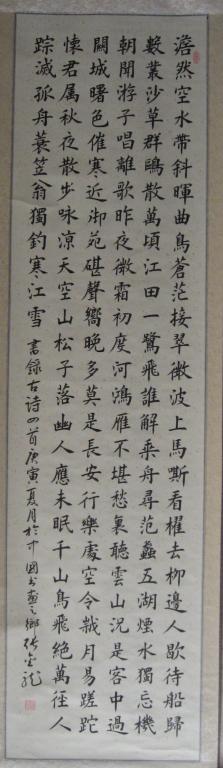 澹然空水帶斜暉曲島蒼茫接翠微波上馬嘶看櫂去柳邊人歇待船歸
數叢沙草群鷗散萬頃江田一鷺飛誰解乘舟尋范蠡五湖煙水獨忘機
朝聞游子唱離歌昨夜微霜初度河鴻雁不堪愁裏聽雲山況是客中過
關城曙色催寒近御苑砧聲嚮晚多莫是長安行樂處空令歲月易蹉跎
懷君属秋夜散步咏涼天空山松子落幽人應未眠千山鳥飛絕萬徑人
踪滅孤舟蓑笠翁獨釣寒江雪 書錄古詩四首庚寅夏月於中國書畫之鄉張金龍